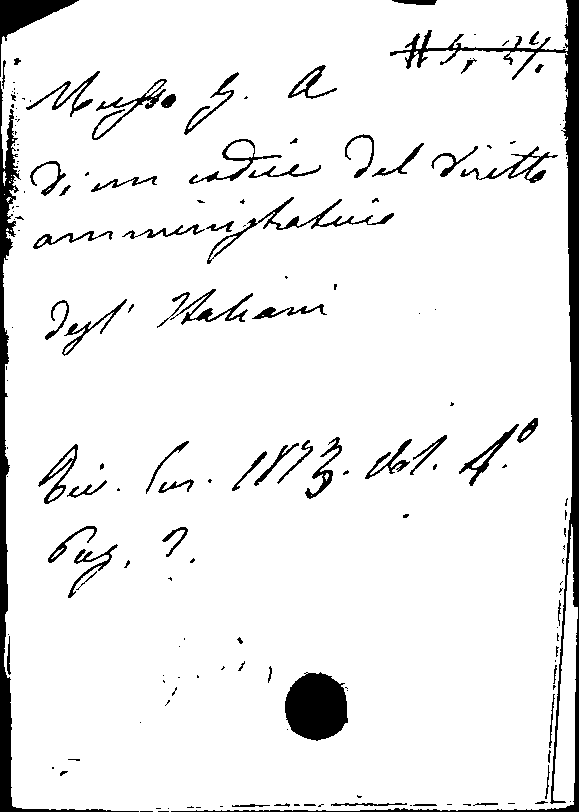 Musso G. A
Di un codice del diritto
amministrativo
degl' Italiani
Giu. 1873. vol. 4.º
Pag. ?.